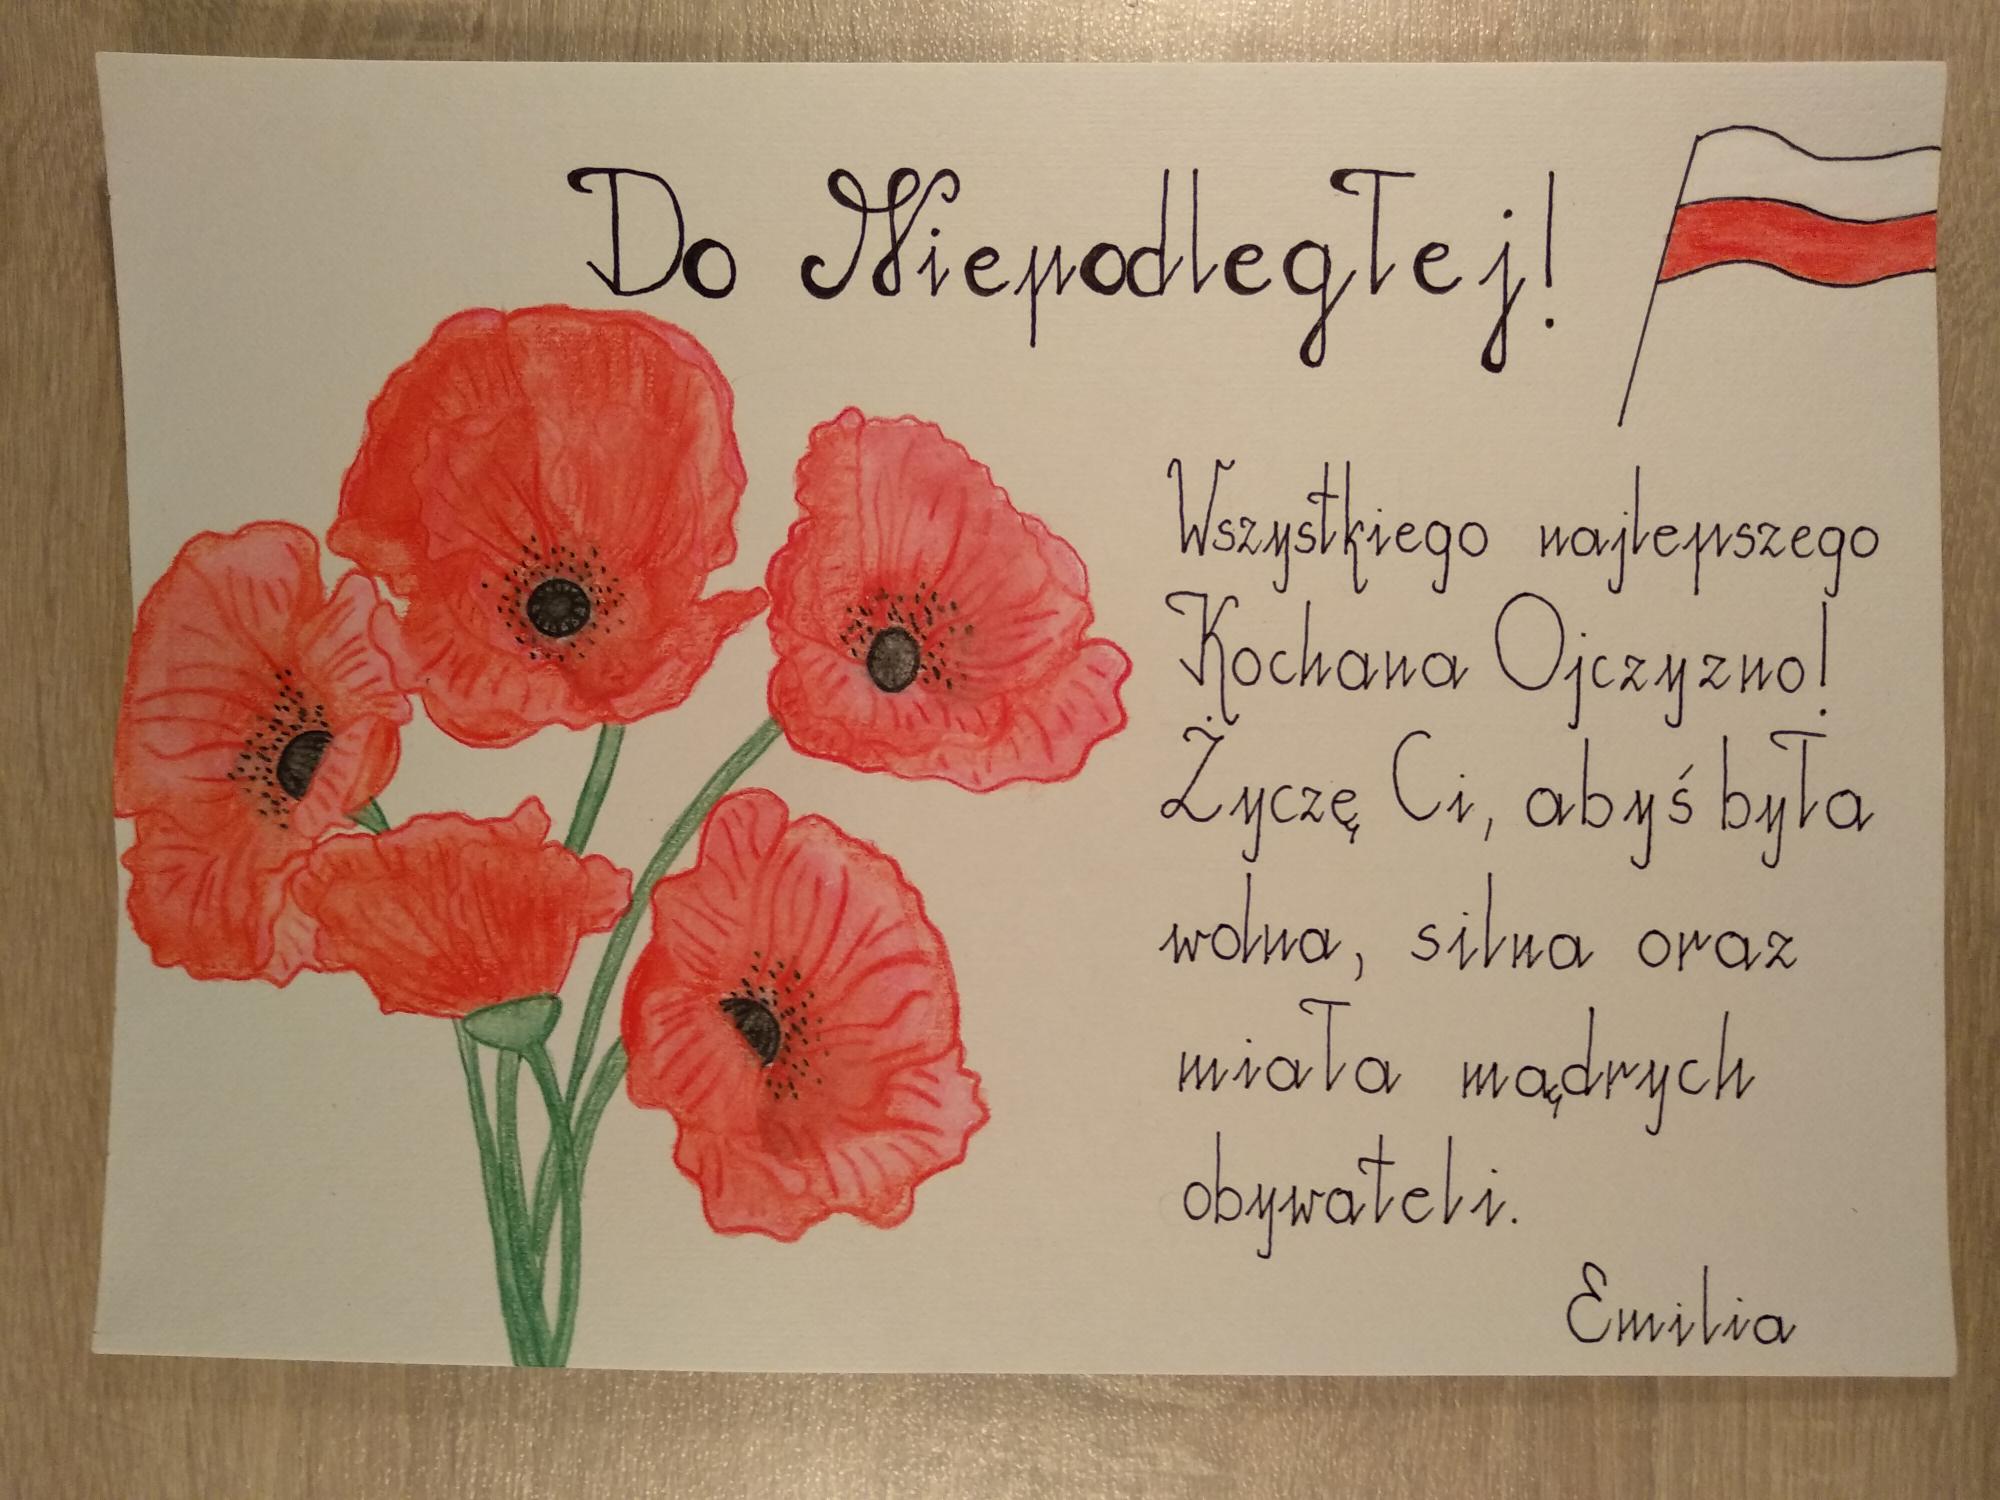 Do Niepodległej!
Wszystkiego najlepszego
Kochana Ojczyzno!
Życzę Ci, abyś była
wolna, silna oraz
miała mądrych
obywateli.
Emilia